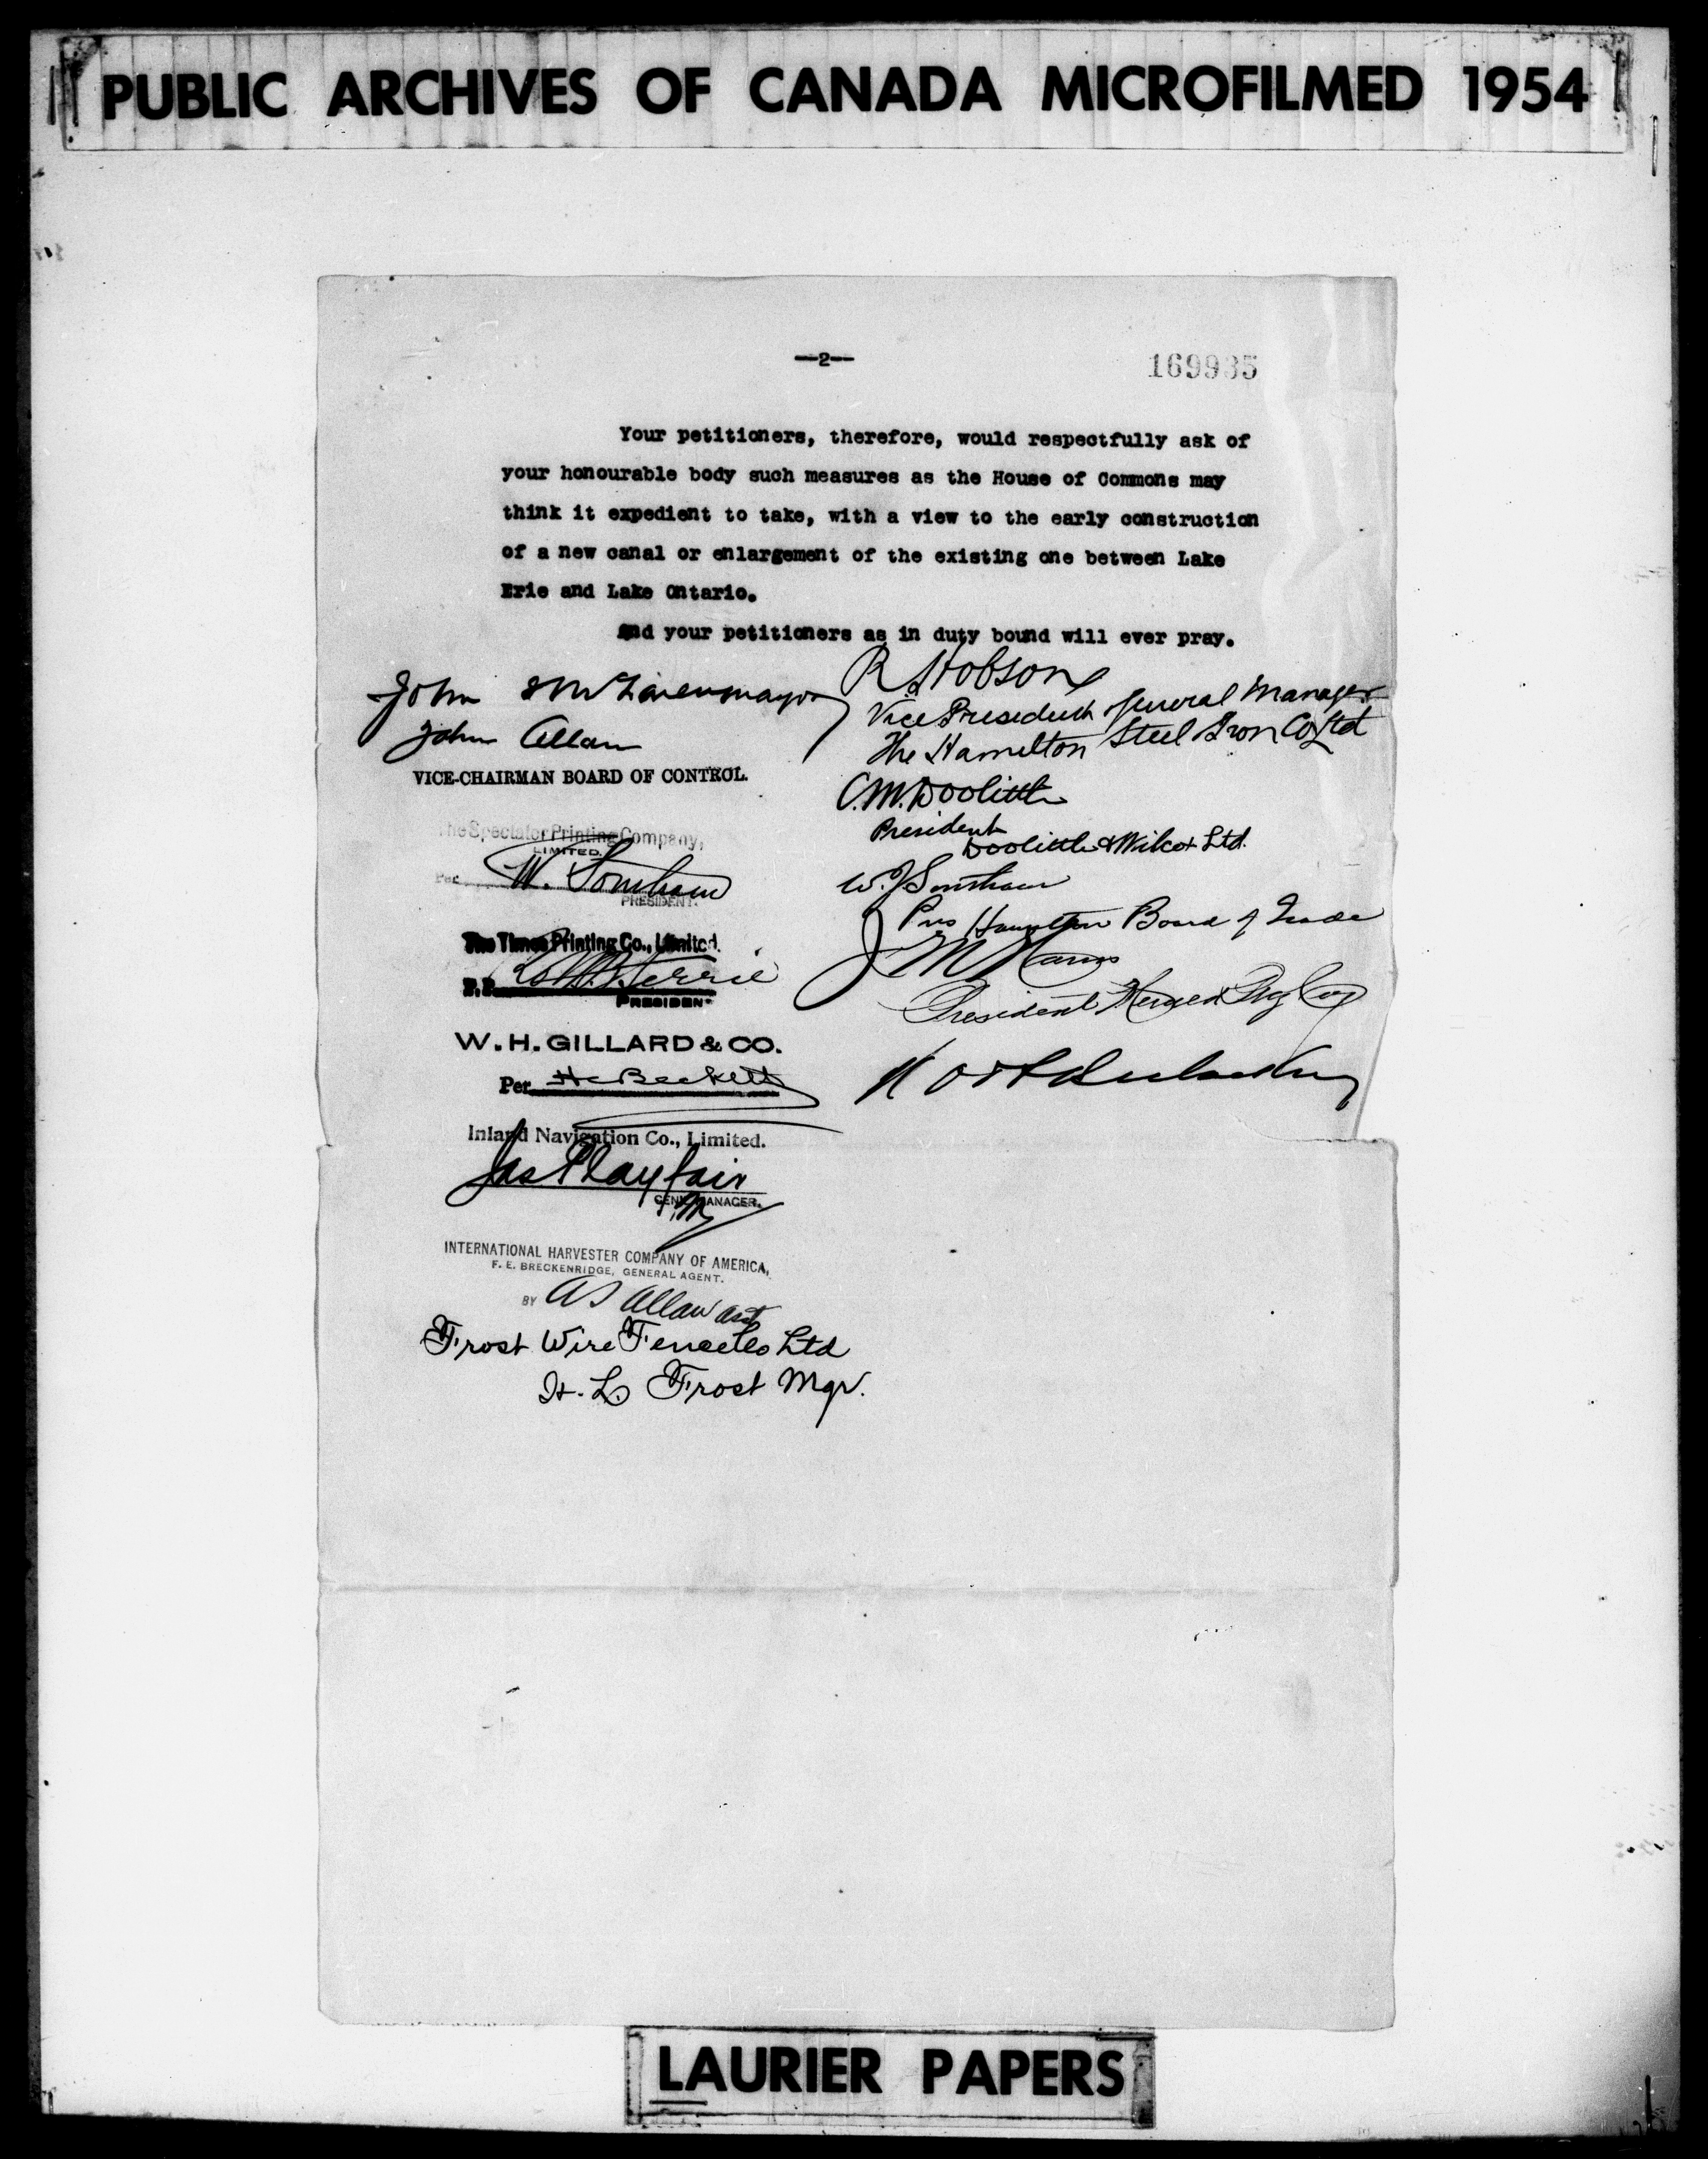 PUBLIC ARCHIVES OF CANADA MICROFILMED 1954
—2—
169935
Your petitioners, therefore, would respectfully ask of
your honourable body such measures as the House of Commons may
think it expedient to take, with a view to the early construction
of a new canal or enlargement of the existing one between Lake
Erie and Lake Ontario.
And your petitioners as in duty bound will ever pray.
John mayor
John Allan
VICE-CHAIRMAN BOARD OF CONTROL.
The Spectator Printing Company,
LIMITED.
Per W. Southam
PRESIDENT.
The Times Printing Co., Limited.
PRESIDENT
W. H. GILLARD & CO.
Per H C Beckett
Inland Navigation Co., Limited.
Jas Playfair
GENL MANAGER.
INTERNATIONAL HARVESTER COMPANY OF AMERICA,
F. E. BRECKENRIDGE, GENERAL AGENT.
BY A S Allan asst
Frost Wire Fence Co Ltd
H. L. Frost Mgr.
R Hobson
Vice President General Manager
The Hamilton Steel Iron Co Ltd
C. M. Doolittle
President
Doolittle & Wilcox Ltd.
W. J Southam
Pres Hamilton Board of Trade
President
LAURIER PAPERS